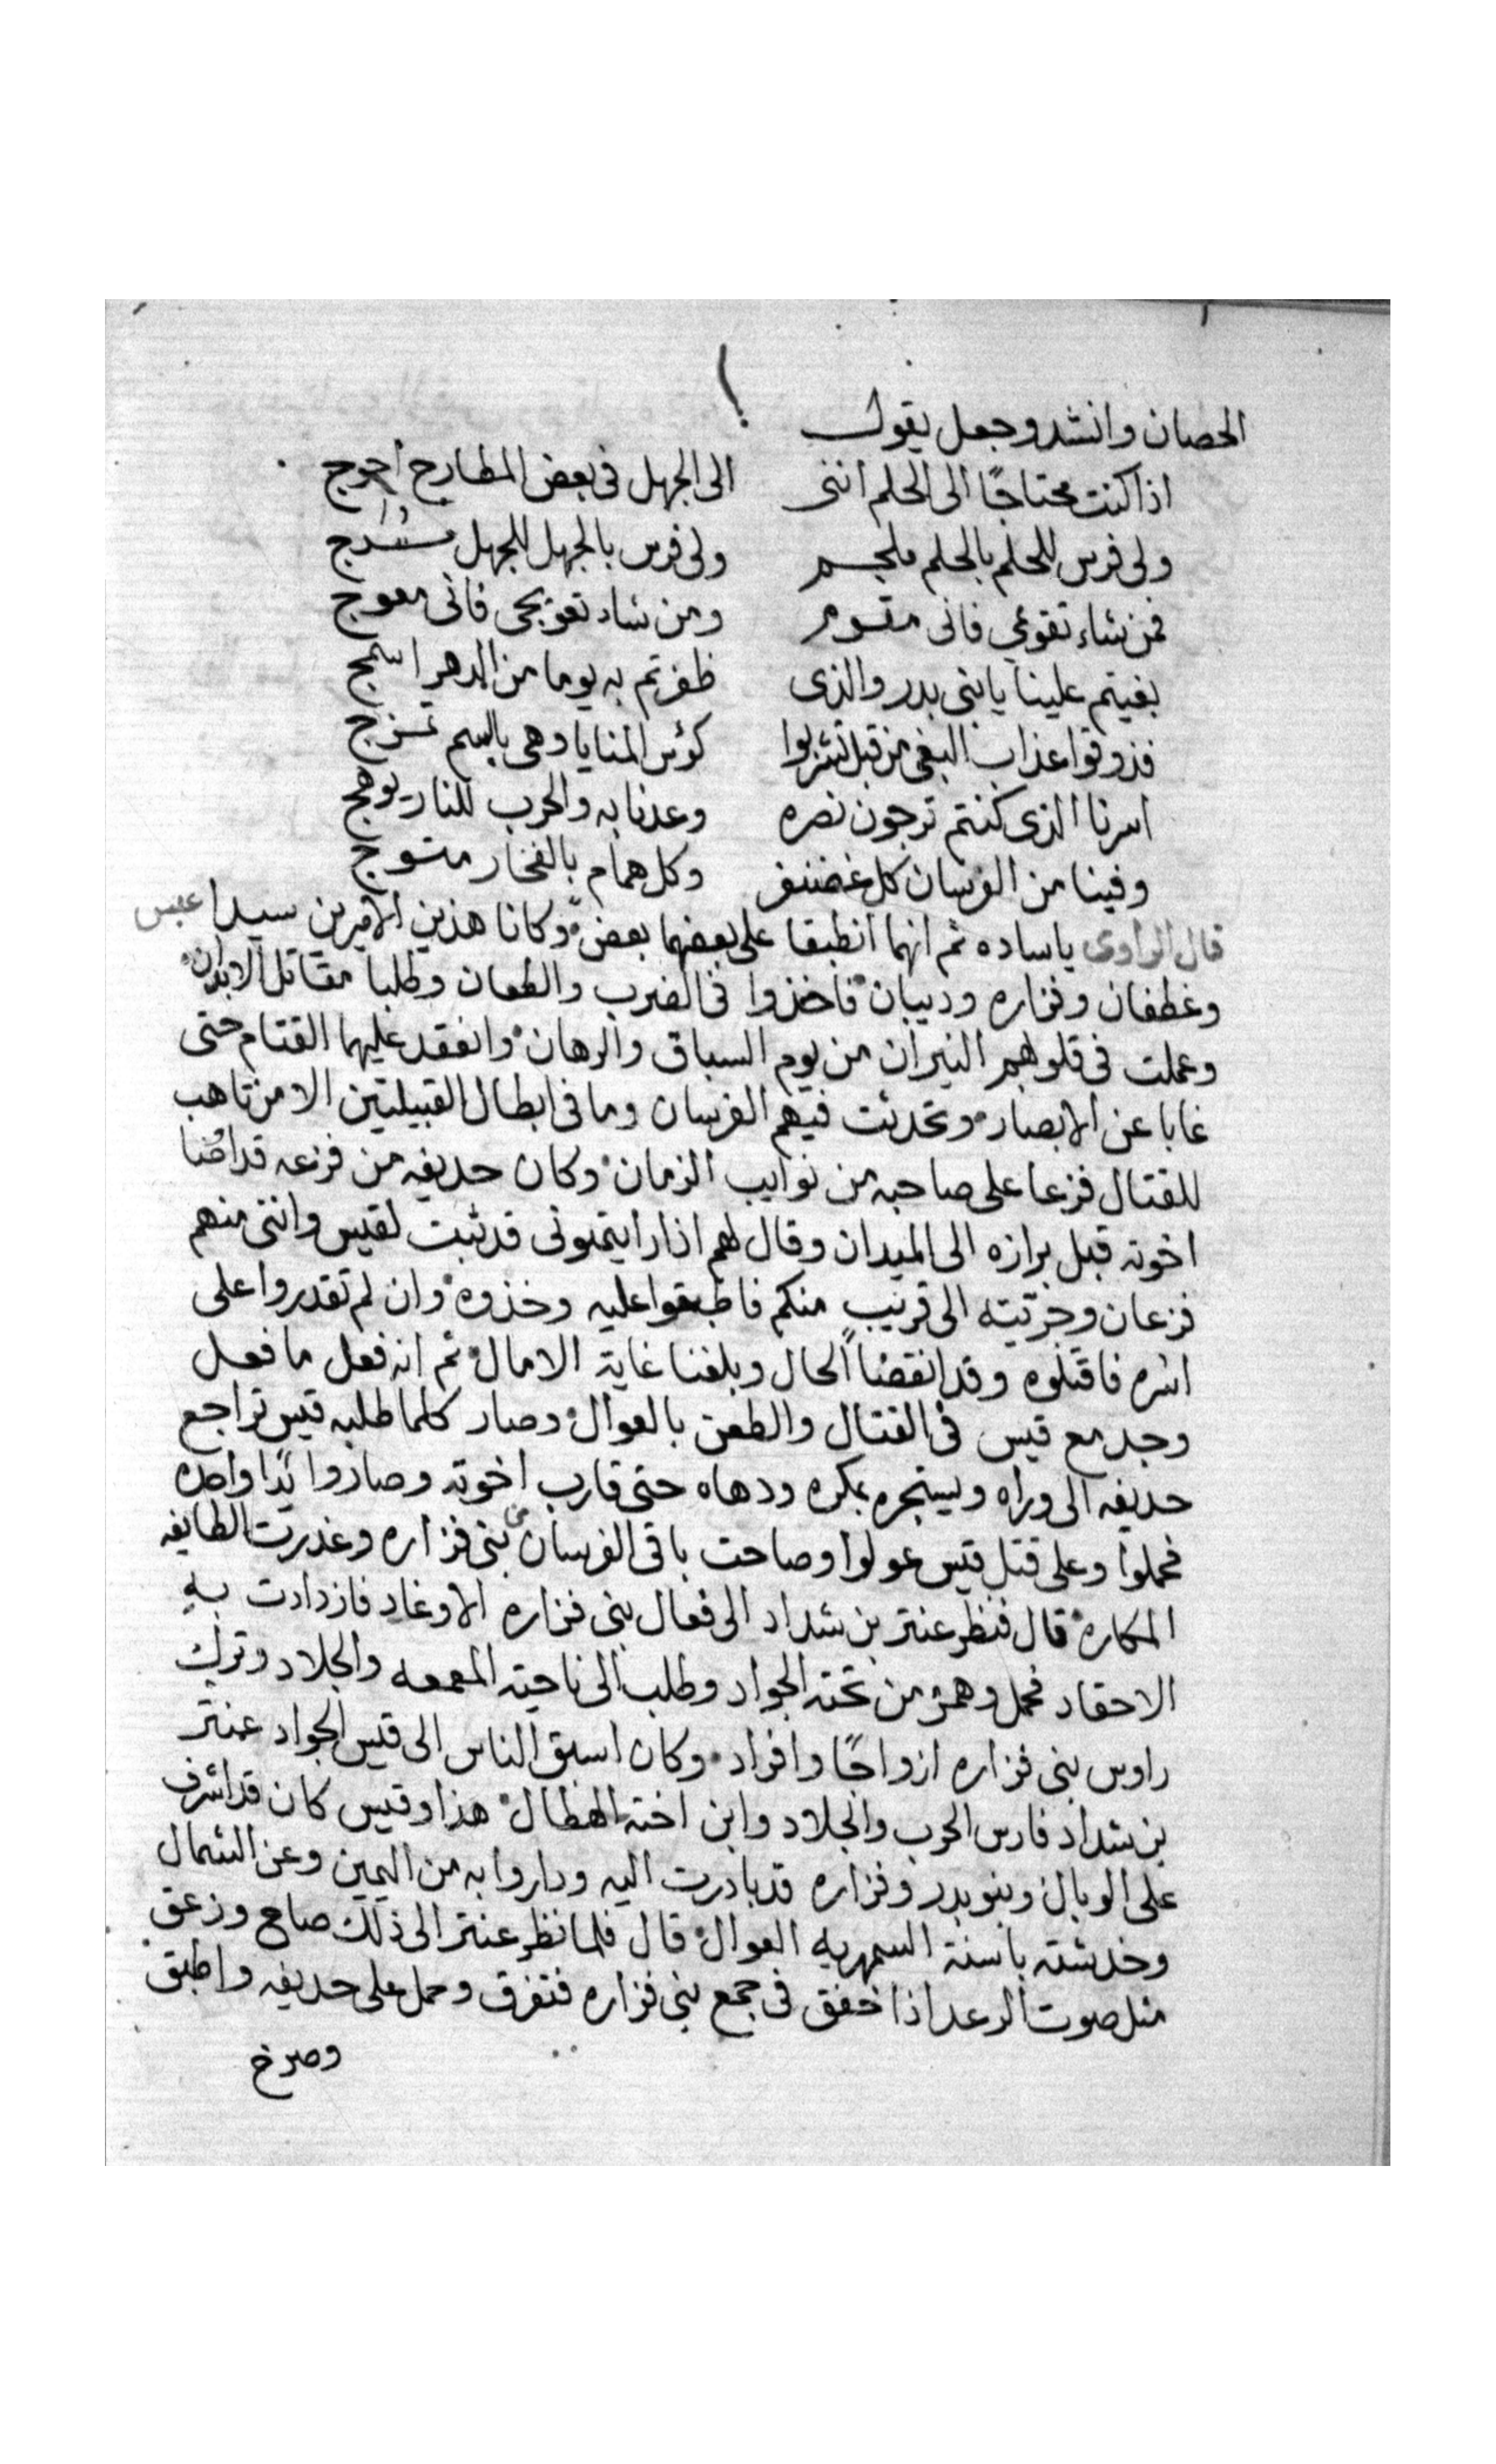 الحصان وانشد وجعل يقول
اذا كنت محتاجًا الى الحلم اننى الى الجهل فى بعض المطارح احوج
ولى فرس للحلم بالحلم ملجم ولى فرس بالجهل للجهل مسرج
فمن شاء تقويمى فانى مقوم ومن شاء تعويجى فانى معوج
بغيتم علينا يا بنى بدر والذى ظفرتم به يوما من الدهر اسمج
فذوقوا عذاب البغى من قبل تشربوا كؤس المنايا وهى بالسم تمزج
اسرنا الذى كنتم ترجون نصره وعدنا به والحرب للنار يوهج
وفينا من الفرسان كل غضنفر وكل همام بالفخار متوج
قال الراوى ياساده ثم انهما انطبقا على بعضهما بعض وكانا هذين الاميرين سيدا عبس
وغطفان وفزاره وديبان فاخذوا فى الضرب والطعان وطلبا مقاتل الابدان
وعملت فى قلوبهم النيران من يوم السباق والرهان وانعقد عليهما القتام حتى
غابا عن الابصار وتحدثت فيهم الفرسان وما فى ابطال القبيلتين الا من تاهب
للقتال فزعا على صاحبه من نوايب الزمان وكان حديفه من فزعه قد اوصا
اخوته قبل برازه الى الميدان وقال لهم اذا رايتمونى قد ثبت لقيس وانتنى منهم
فزعان وجريته الى قريب منكم فاطبقوا عليه وخذوه وان لم تقدروا على
اسره فاقتلوه وقد انقضا الحال وبلغنا غاية الامال ثم انه فعل ما فعل
وجد مع قيس فى القتال والطعن بالعوال وصار كلما طلبه قيس تراجع
حديفه الى وراه ويستجره بمكره ودهاه حتى قارب اخوته وصاروا يدًا واحده
فحملوا وعلى قتل قيس عولوا وصاحت باقى الفرسان من بنى فزاره وغدرت الطايفه
المكاره قال فنظر عنتر بن شداد الى فعال بنى فزاره الاوغاد فازدادت به
الاحقاد فحمل وهمز من تحته الجواد وطلب الى ناحية المعمعه والجلاد وترك
راوس بنى فزاره ازواجًا وافراد وكان اسبق الناس الى قيس الجواد عنتر
بن شداد فارس الحرب والجلاد وابن اخته الهطال هذا وقيس كان قد اشرف
على الوبال وبنو بدر وفزاره قد بادرت اليه وداروا به من اليمين وعن الشمال
وخدشته باسنة السمهريه العوال قال فلما نظر عنتر الى ذلك صاح وزعق
مثل صوت الرعد اذا خفق فى جمع بنى فزاره فتفرق وحمل على حديفه واطبق
وصرخ